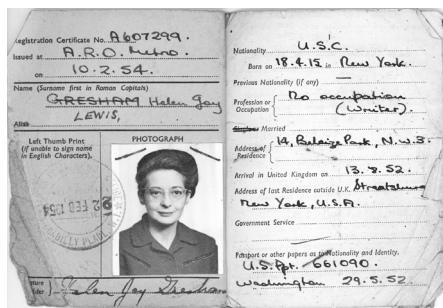 Registration Certificate No. A607299.
Issued at A.R.O. Metro.
on 10.2.54.
Name (Surname first in Roman Capitals)
GRESHAM Helen Joy
LEWIS,
Alias
Left Thumb Print
(if unable to sign name
in English Characters).
PHOTOGRAPH
22 FEB 1954
Helen Joy Gresham
Nationality U.S.C.
Born on 18.4.15 in New York.
Previous Nationality (if any)
Profession or
Occupation
No occupation
(Writer).
Single Married
Address of
Residence
14, Belsize Park, N.W.3.
Arrival in United Kingdom on 13.8.52.
Address of last Residence outside U.K. Staatsburg
New York, U.S.A.
Government Service
Passport or other papers as to Nationality and Identity.
U.S. Ppt. 661090.
Washington 29.5.52.